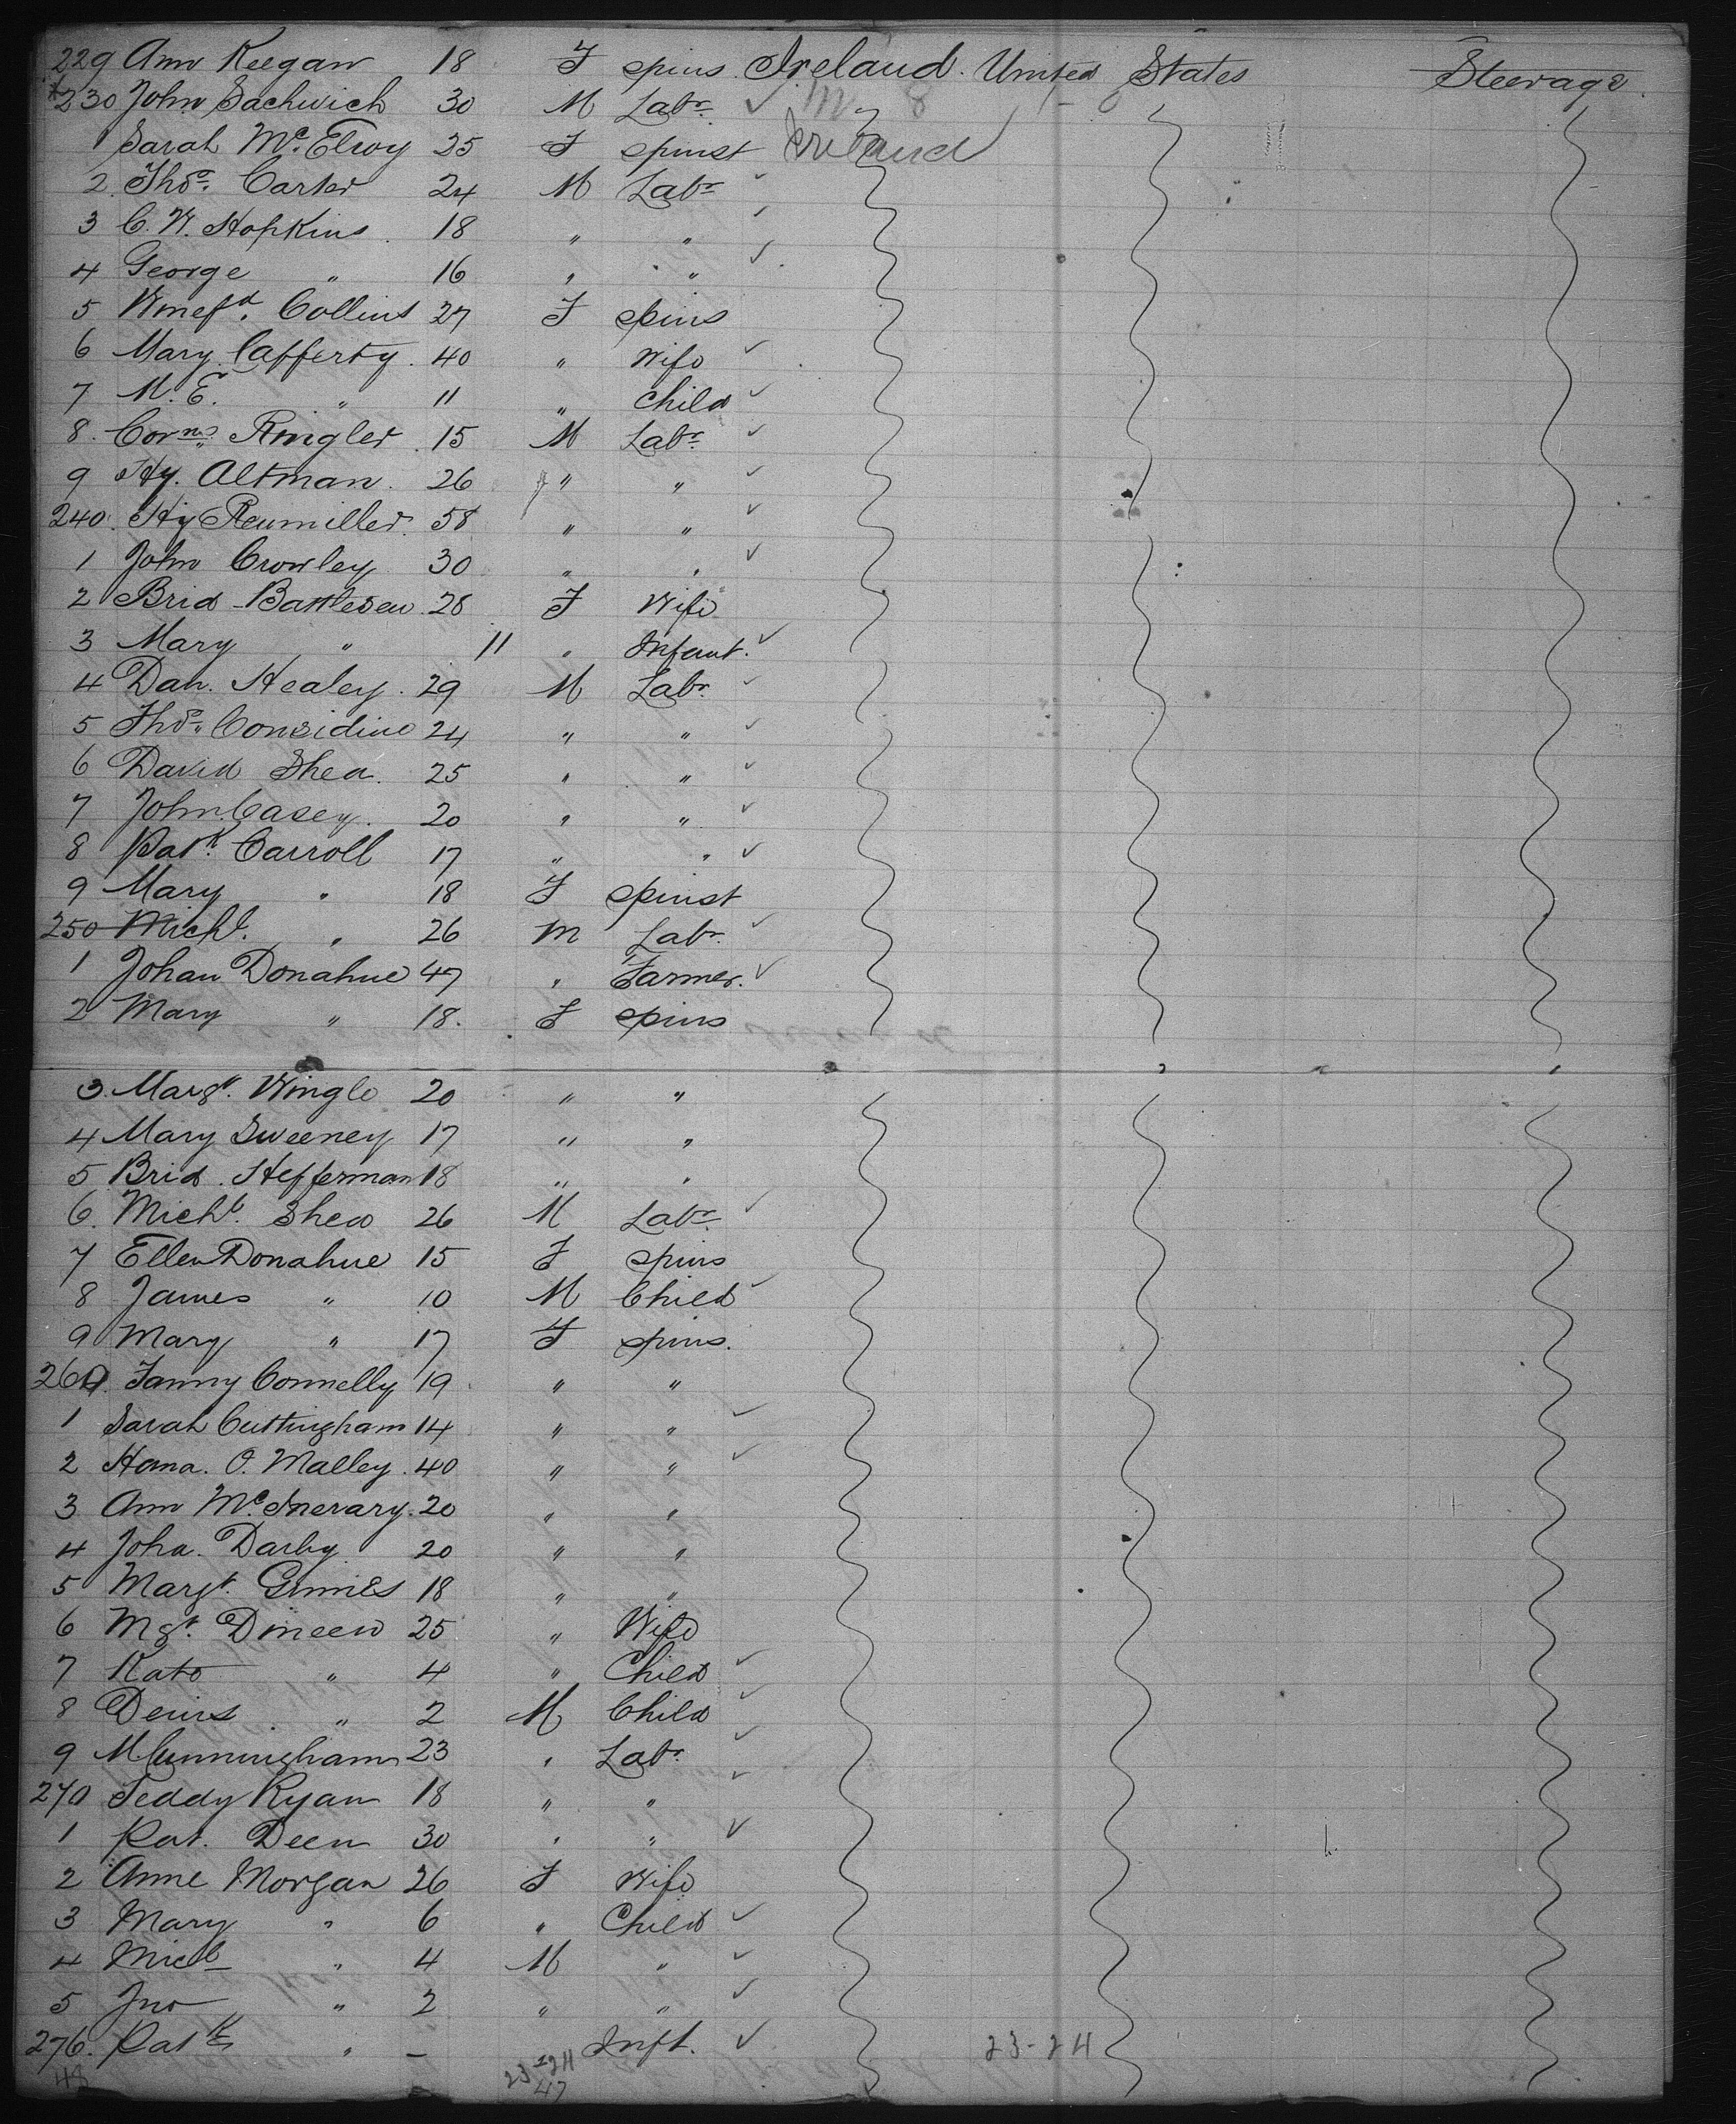 229 Ann Keegan 18 F spins. Ireland. United States Steerage.
230 John Sachwich 30 M Labr. ✓
1 Sarah McElroy 25 F spinst Ireland
2. Thos. Carter 24 M Labr ✓
3 C. W. Hopkins. 18 " " ✓
4 George " 16 " " ✓
5 Winefd. Collins 27 F spins
6 Mary Cafferty. 40 " Wife ✓
7 M. E. " 11 " Child ✓
8. Corns. Ringler. 15 M Labr. ✓
9 Hy. Altman. 26 " " ✓
240. Hy Reumiller. 58 " " ✓
1 John Crowley 30 " " ✓
2 Brid 28 F Wife
3 Mary " 11 " Infant. ✓
4 Dan. Healey. 29 M Labr. ✓
5 Thos. Considine 24 " " ✓
6 David Shea. 25 " " ✓
7 John Casey. 20 " " ✓
8 Patk. Carroll 17 " " ✓
9 Mary " 18 F spinst
250 Michl. " 26 M Labr. ✓
1 Johan Donahue 47 " Farmer. ✓
2 Mary " 18. F spins
3. Margt. Wingle 20 " "
4 Mary Sweeney 17 " "
5 Brid. Hefferman 18 " "
6. Michl. Shea 26 M Labr. ✓
7 Ellen Donahue 15 F spins
8 James " 10 M Child ✓
9 Mary " 17 F spins.
260. Fanny Connelly 19 " "
1 Sarah Cuttingham 14 " " ✓
2 Hana. O. Malley. 40 " " ✓
3 Ann McInerary. 20 " "
4 Joha. Darby 20 " "
5 Margt. 18 " "
6 Mgt. Dineen 25 " Wife
7 Kate " 4 " Child ✓
8 Denis " 2 M Child ✓
9 M Cunningham 23 " Labr. ✓
270 Teddy Ryan 18 " " ✓
1 Pat. Deen 30 " " ✓
2 Anne Morgan 26 F Wife
3 Mary " 6 " Child ✓
4 Michl " 4 M " ✓
5 Jno " 2 " " ✓
276. Patk " - Inft. ✓ 23-24
48 23-24
47